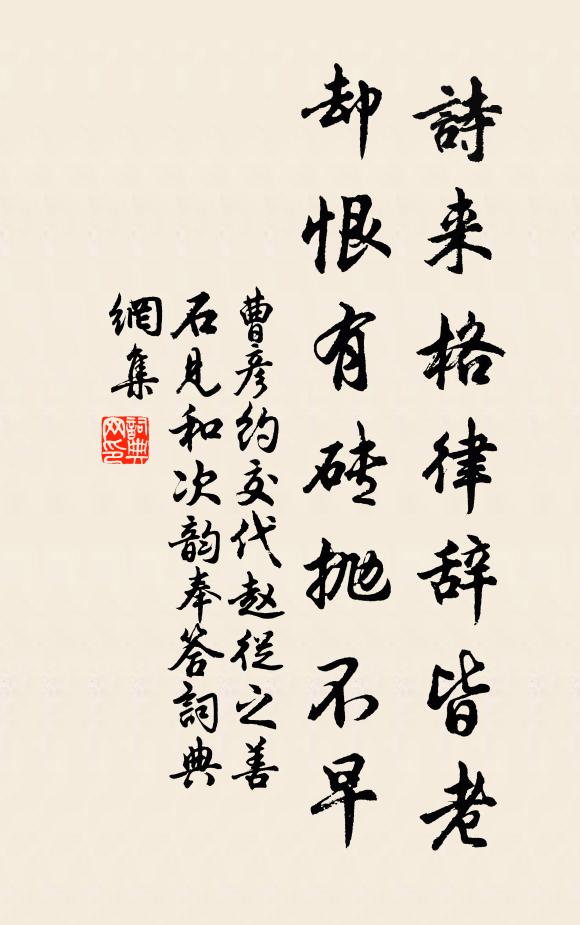 詩来格律辞皆老
却恨有砖抛不早
曹彦约交代赵從之善
石見和次韵奉答詞典
網集
詞典
网印